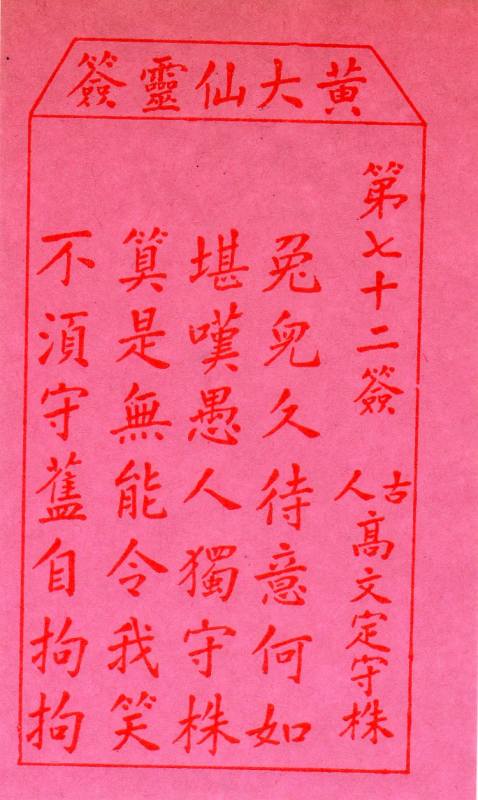 黃大仙靈簽
第七十二簽 古人 高文定守株
兔兒久待意何如
堪嘆愚人獨守株
算是無能令我笑
不須守舊自拘拘